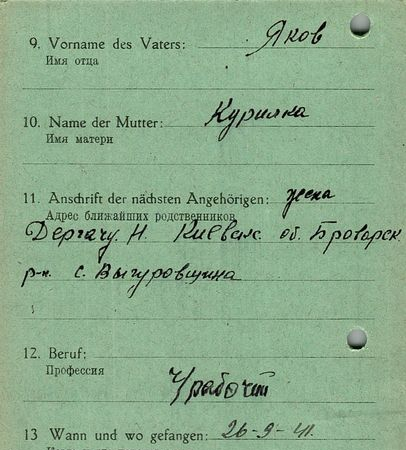 9. Vorname des Vaters: Яков
Имя отца
10. Name der Mutter: Курилка
Имя матери
11. Anschrift der nächsten Angehörigen: жена
Адрес ближайших родственников
Дергачу Н. Киевск. об. Броварск
р-н. с. Выгуровщина
12. Beruf:
Профессия
рабочий
13 Wann und wo gefangen: 26-9-41.